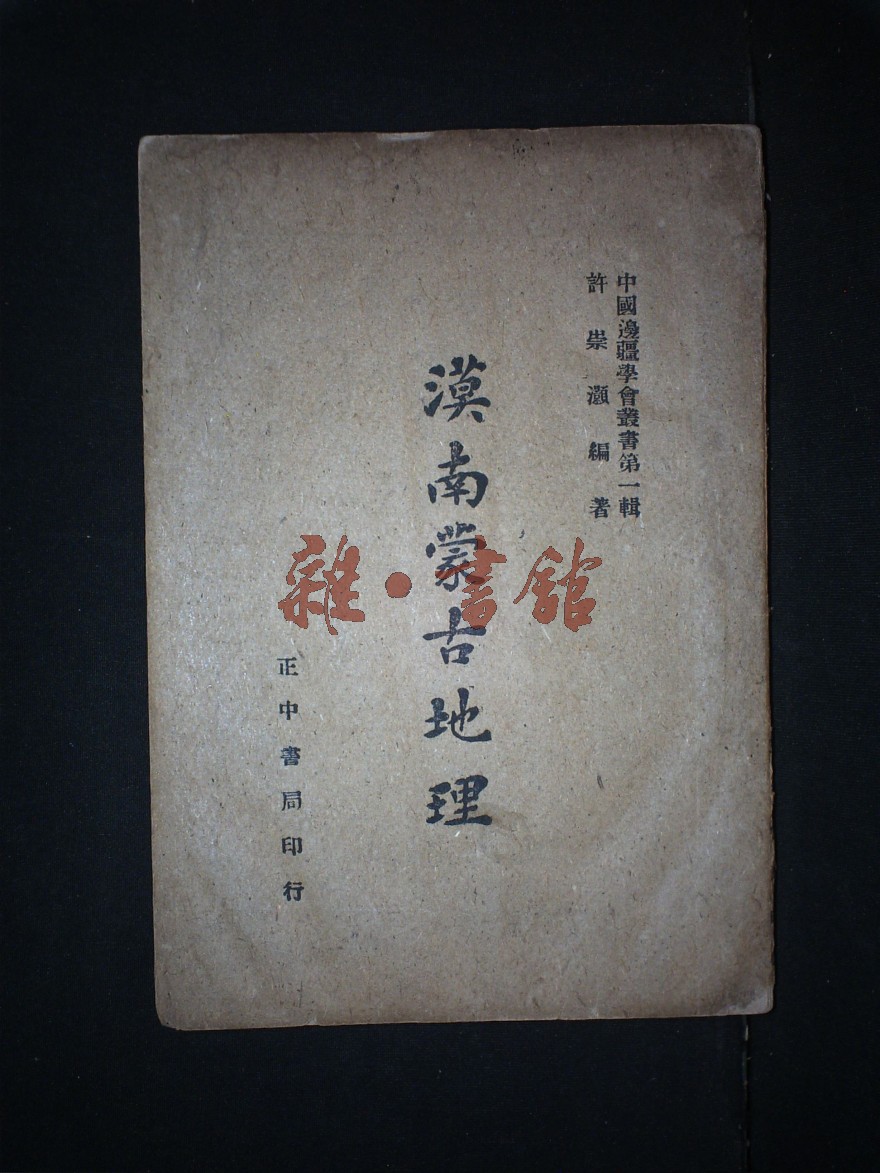 中國邊疆學會叢書第一輯
許崇灝編著
漠南蒙古地理
正中書局印行
雜·書館